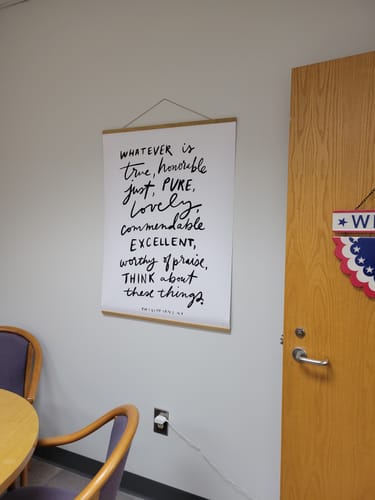 WHATEVER is
true, honorable
just, PURE,
Lovely,
commendable
EXCELLENT,
worthy of praise,
THINK about
these things.
PHILIPPIANS 4:8